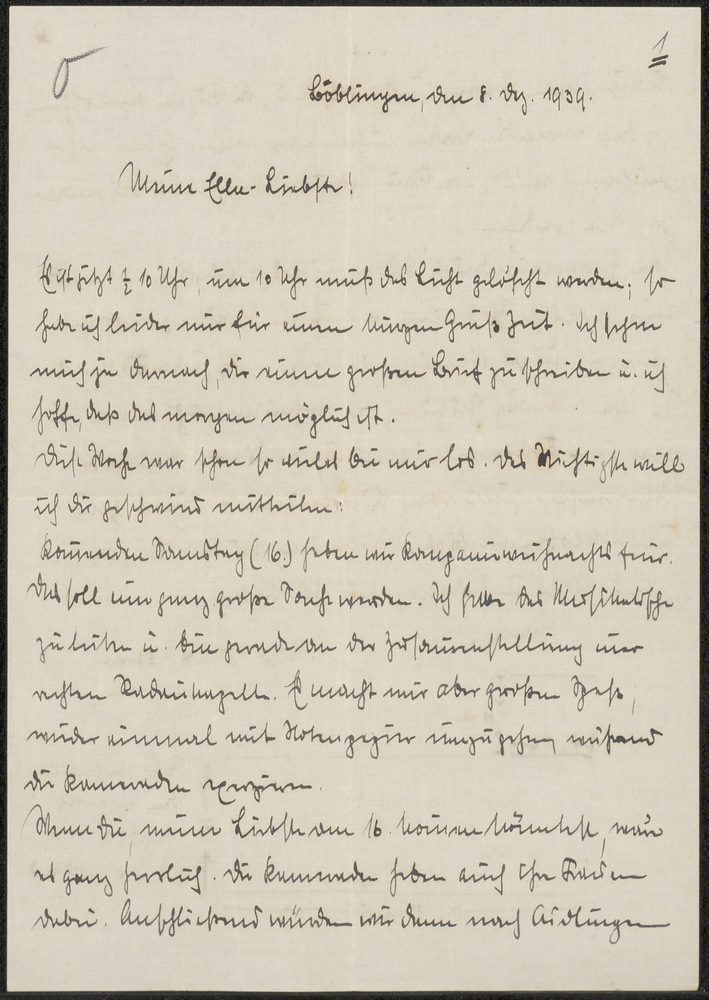 1
Böblingen, den 8. Dez. 1939.
Meine Ella-Liebste!
Es ist jetzt ½ 10 Uhr, um 10 Uhr muß das Licht gelöscht werden; so
habe ich leider nur für einen kurzen Gruß Zeit. Ich sehne
mich ja darnach, Dir einen großen Brief zu schreiben u. ich
hoffe, daß das morgen möglich ist.
Diese Woche war schon so vieles bei mir los. Das Wichtigste will
ich Dir geschwind mitteilen:
Kommenden Samstag (16.) haben wir Kompanieweihnachtsfeier.
Das soll eine ganz große Sache werden. Ich habe das Musikalische
zu leiten u. bin gerade an der Zusammenstellung einer
rechten Radaukapelle. Es macht mir aber großen Spaß,
wieder einmal mit Notenpapier umzugehen, während
die Kameraden exerzieren.
Wenn Du, meine Liebste am 16. kommen könntest, wäre
es ganz herrlich. Die Kameraden haben auch ihre Frauen
dabei. Anschließend würden wir dann nach Aidlingen